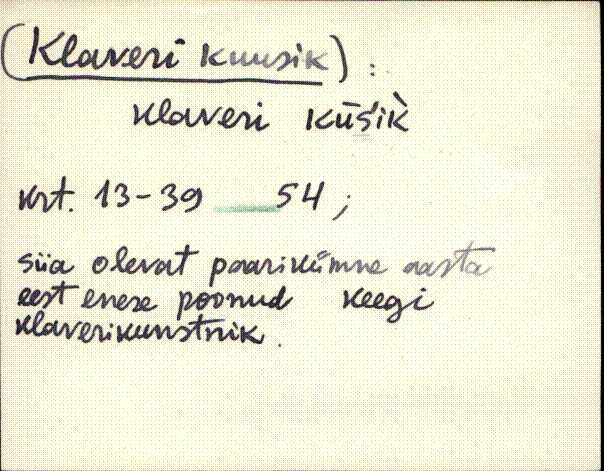 (Klaveri kuusik) :
klaveri kūsik̀
krt. 13-39 54 ;
siia olevat paarikümne aasta
eest enese poonud keegi
klaverikunstnik.